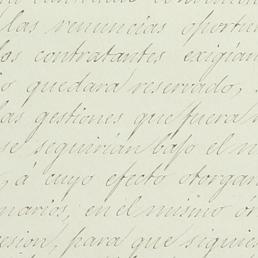 las renuncias oportu
los contratantes exigian
o quedara reservado,
las gestiones que fuera n
se seguirian bajo el n
, á cuyo efecto otorgan
narios, en el mismo ór
esion, para que siguie